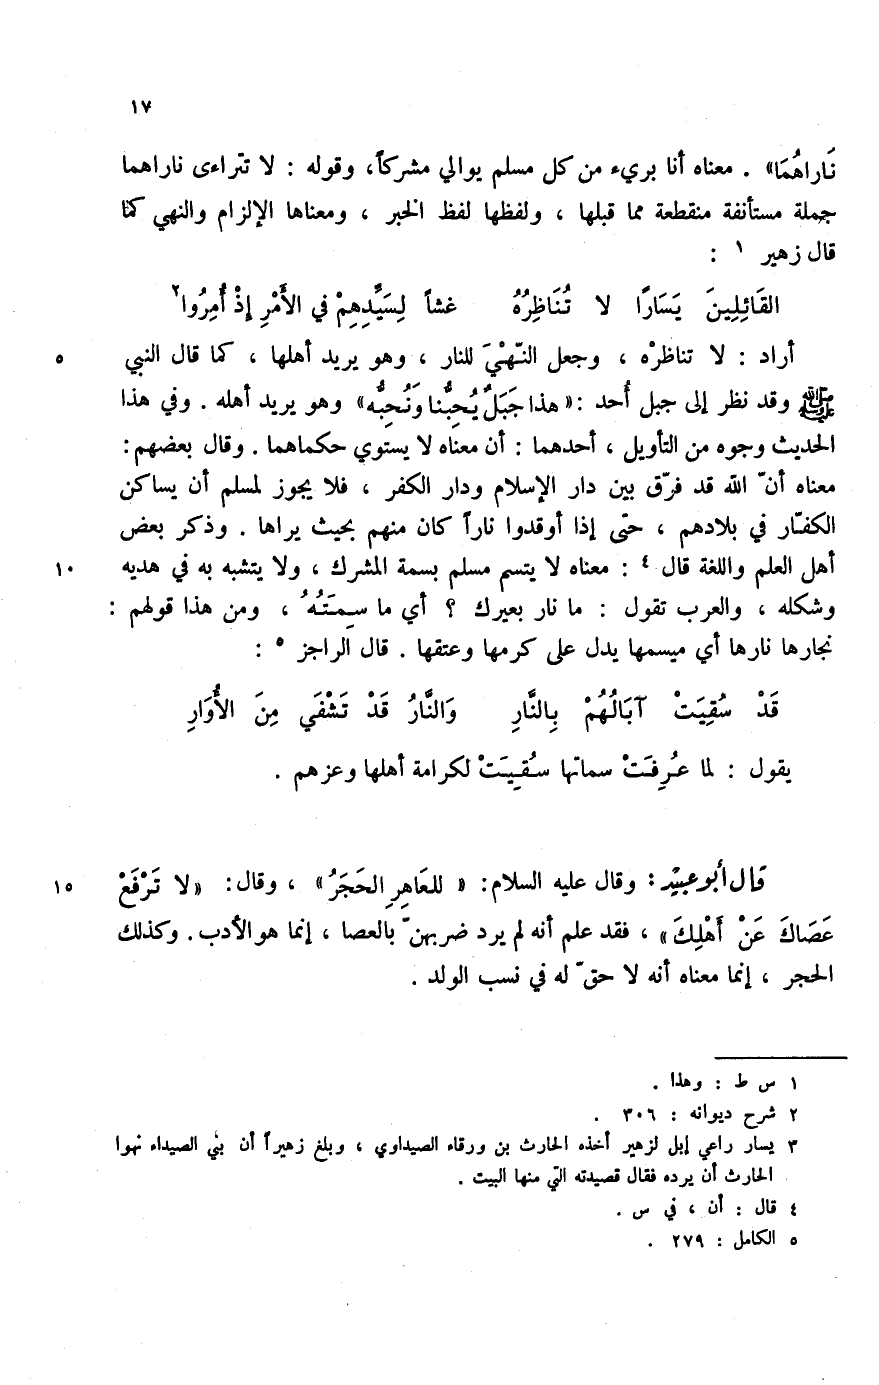 ١٧
نَاراهُمَا» . معناه أنا بريء من كل مسلم يوالي مشركاً، وقوله : لا تتراءى ناراهما
جملة مستأنفة منقطعة مما قبلها ، ولفظها لفظ الخبر ، ومعناها الإلزام والنهي كما
قال زهير ١ :
القَائِلِينَ يَسَارًا لا تُنَاظِرُهُ غشاً لِسَيِّدِهِمْ في الأَمْرِ إذْ أُمِرُوا٢
أراد : لا تناظرْه ، وجعل النّهْيَ للنار ، وهو يريد أهلها ، كما قال النبي ٥
ﷺ وقد نظر إلى جبل أُحد :« هذا جَبَلٌ يُحِبُّنا ونُحِبُّه» وهو يريد أهله . وفي هذا
الحديث وجوه من التأويل ، أحدهما : أن معناه لا يستوي حكماهما . وقال بعضهم :
معناه أنّ الله قد فرّق بين دار الإسلام ودار الكفر ، فلا يجوز لمسلم أن يساكن
الكفّار في بلادهم ، حتّى إذا أوقدوا ناراً كان منهم بحيث يراها . وذكر بعض
أهل العلم واللغة قال ٤ : معناه لا يتسم مسلم بسمة المشرك ، ولا يتشبه به في هديه ١٠
وشكله ، والعرب تقول : ما نار بعيرك ؟ أي ما سِمَتُهُ ، ومن هذا قولهم :
نجارها نارها أي ميسمها يدل على كرمها وعتقها . قال الراجز ٥ :
قَدْ سُقِيَتْ آبَالُهُمْ بِالنَّارِ وَالنَّارُ قَدْ تَشْفَي مِنَ الأُوَارِ
يقول : لما عُرِفَتْ سماتها سُقِيَتْ لكرامة أهلها وعزهم .
قال أبو عبيد : وقال عليه السلام: « للعَاهِرِ الحَجَرُ» ، وقال: «لا تَرْفَعْ ١٥
عَصَاكَ عَنْ أَهْلِكَ» ، فقد علم أنه لم يرد ضربهنّ بالعصا ، إنما هو الأدب. وكذلك
الحجر ، إنما معناه أنه لا حقّ له في نسب الولد .
١ س ط : وهذا .
٢ شرح ديوانه : ٣٠٦ .
٣ يسار راعي إبل لزهير أخذه الحارث بن ورقاء الصيداوي ، وبلغ زهيراً أن بني الصيداء نهوا
الحارث أن يرده فقال قصيدته التي منها البيت .
٤ قال : أن ، في س .
٥ الكامل : ٢٧٩ .